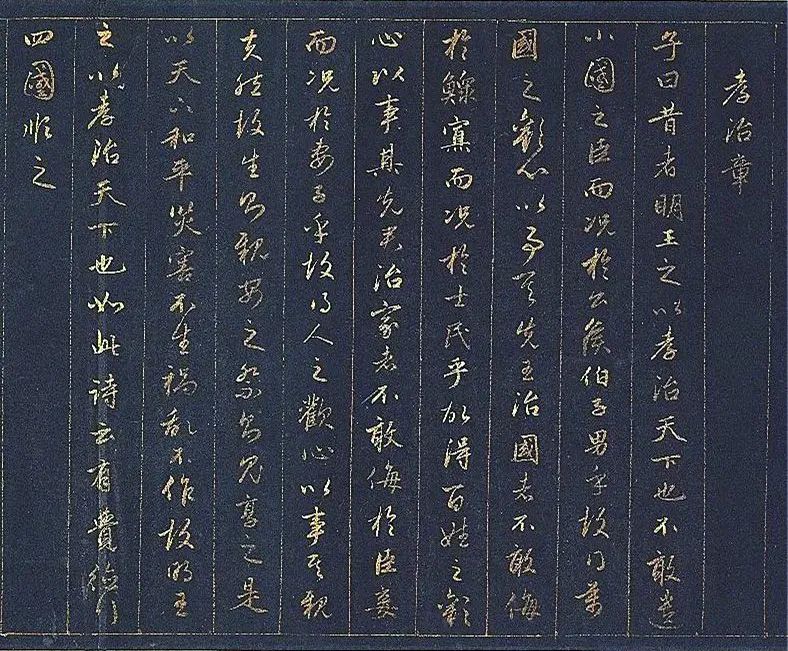 孝治章
子曰昔者明王之以孝治天下也不敢遺
小國之臣而况於公侯伯子男乎故得萬
國之歡心以事其先王治國者不敢侮
於鰥寡而况於士民乎故得百姓之歡
心以事其先君治家者不敢侮於臣妾
而况於妻子乎故得人之歡心以事其親
夫然故生則親安之祭則鬼享之是
以天下和平災害不生禍亂不作故明王
之以孝治天下也如此詩云有覺德行
四國順之